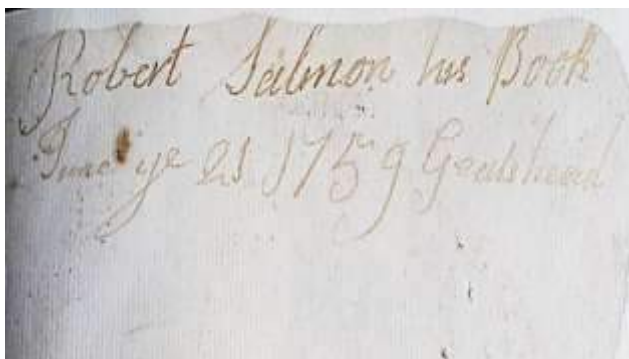 Robert Salmon his Book
June ye 21 1759 Geatshead